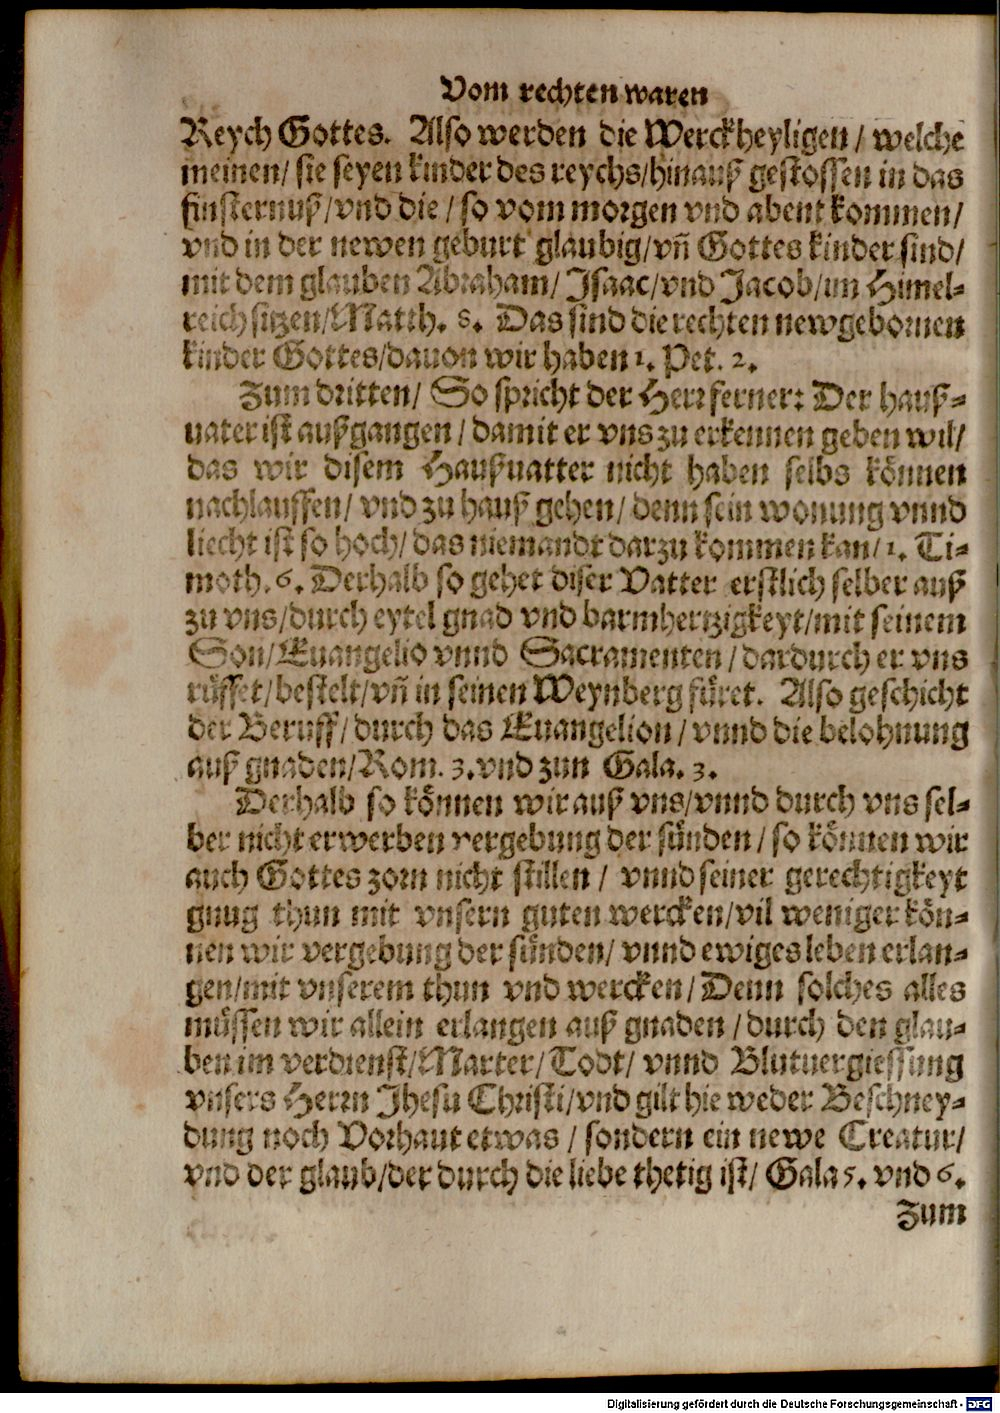 Vom rechten waren
Reych Gottes. Also werden die Werckheyligen / welche
meinen/ sie seyen kinder des reychs/hinauß gestossen in das
finsternuß/vnd die / so vom morgen vnd abent kommen/
vnd in der newen geburt glaubig/vñ Gottes kinder sind/
mit dem glauben Abraham/ Isaac/vnd Jacob/im Himel-
reich sitzen/Matth. 8. Das sind die rechten newgebornen
kinder Gottes/dauon wir haben 1. Pet. 2.
Zum dritten/ So spricht der Herr ferner: Der hauß-
uater ist außgangen / damit er vns zu erkennen geben wil/
das wir disem Haußuatter nicht haben selbs können
nachlauffen/ vnd zu hauß gehen/ denn sein wonung vnnd
liecht ist so hoch/ das niemandt darzu kommen kan/ 1. Ti-
moth. 6. Derhalb so gehet diser Vatter erstlich selber auß
zu vns/durch eytel gnad vnd barmhertzigkeyt/mit seinem
Son/Euangelio vnnd Sacramenten / dardurch er vns
rüffet/bestelt/vñ in seinen Weynberg füret. Also geschicht
der Beruff/ durch das Euangelion / vnnd die belohnung
auß gnaden/Rom. 3.vnd zun Gala. 3.
Derhalb so können wir auß vns/vnnd durch vns sel-
ber nicht erwerben vergebung der sünden / so können wir
auch Gottes zorn nicht stillen / vnnd seiner gerechtigkeyt
gnug thun mit vnsern guten wercken/vil weniger kön-
nen wir vergebung der sünden/ vnnd ewiges leben erlan-
gen/mit vnserem thun vnd wercken/ Denn solches alles
müssen wir allein erlangen auß gnaden / durch den glau-
ben im verdienst/Marter/ Todt/ vnnd Blutuergiessung
vnsers Herrn Jhesu Christi/vnd gilt hie weder Beschney-
dung noch Vorhaut etwas / sondern ein newe Creatur/
vnd der glaub/der durch die liebe thetig ist/ Gala 5. vnd 6.
Zum
Digitalisierung gefördert durch die Deutsche Forschungsgemeinschaft - DFG